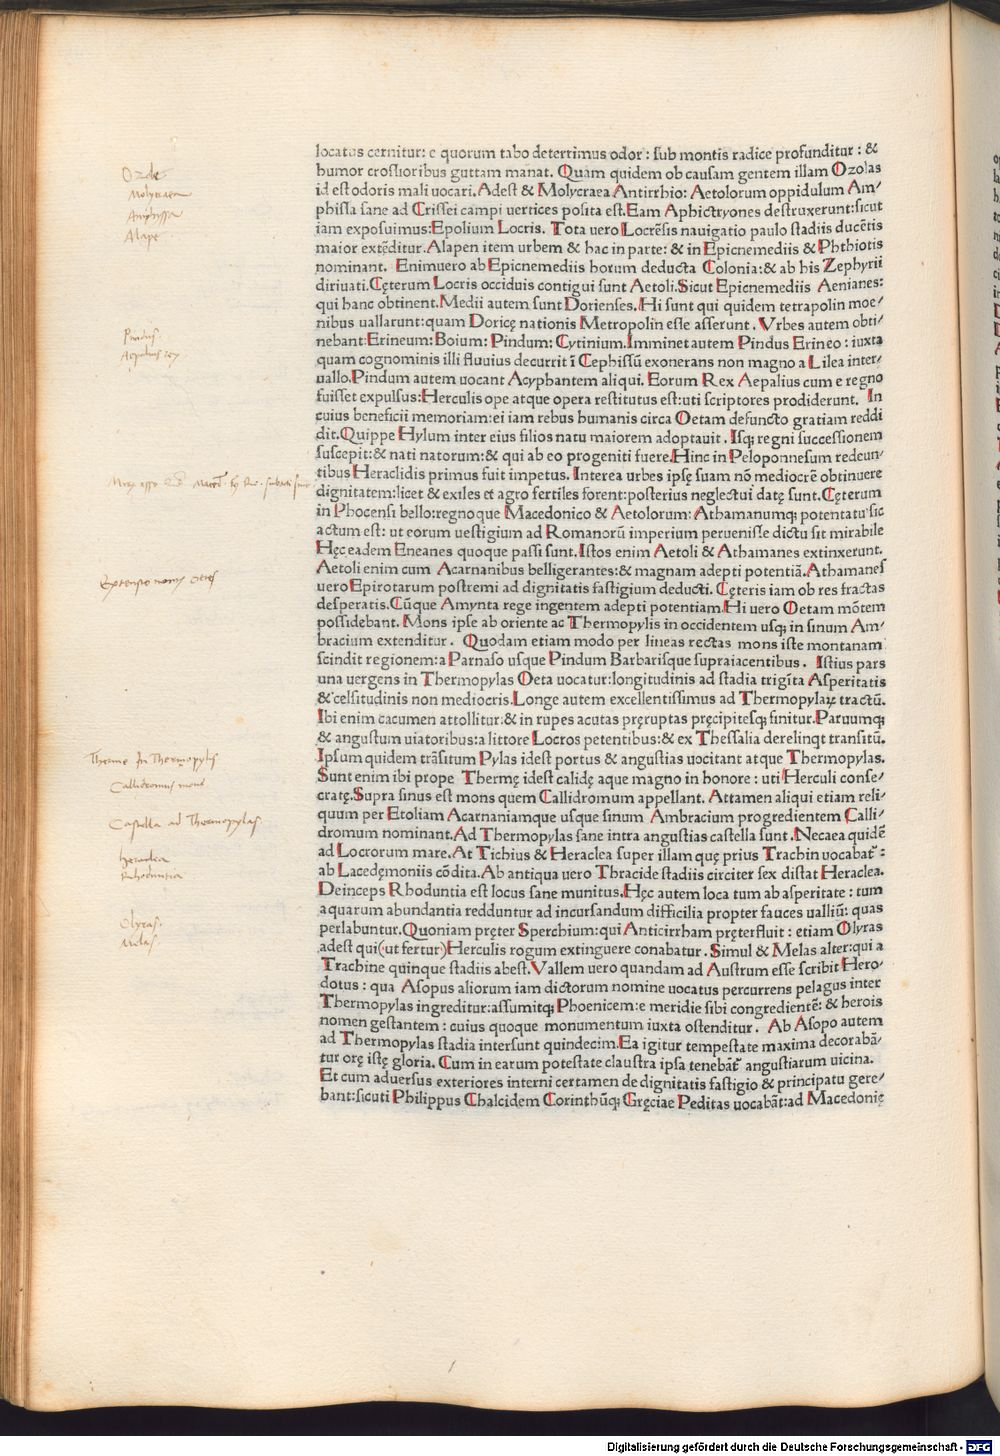 locatus cernitur: e quorum tabo deterrimus odor: sub montis radice profunditur: &
humor crossioribus guttam manāt. Quam quidem ob causam gentem illam Ozolas
id est odoris mali uocari. Adest & Molycraea Antirrhio: Aetolorum oppidulum Am/
phissa sane ad Crissei campi uertices posita est. Eam Aphictryones destruxerunt: sicut
iam exposuimus: Epolium Locris. Tota uero Locrēsis nauigatio paulo stadiis ducētis
maior extēditur. Alapen item urbem & hac in parte: & in Epicnemediis & Phthiotis
nominant. Enimuero ab Epicnemediis horum deducta Colonia: & ab his Zephyrii
diriuati. Cęterum Locris occiduis contigui sunt Aetoli. Sicut Epicnemediis Aenianes:
qui hanc obtinent. Medii autem sunt Dorienses. Hi sunt qui quidem tetrapolin moe/
nibus uallarunt: quam Doricę nationis Metropolin esse asserunt. Vrbes autem obti/
nebant: Erineum: Boium: Pindum: Cytinium. Imminet autem Pindus Erineo: iuxta
quam cognominis illi fluuius decurrit ī Cephissū exonerans non magno a Lilea inter/
uallo. Pindum autem uocant Acyphantem aliqui. Eorum Rex Aepalius cum e regno
fuisset expulsus: Herculis ope atque opera restitutus est: uti scriptores prodiderunt. In
cuius beneficii memoriam: ei iam rebus humanis circa Oetam defuncto gratiam reddi
dit. Quippe Hylum inter eius filios natu maiorem adoptauit. Isq; regni successionem
suscepit: & nati natorum: & qui ab eo progeniti fuere. Hinc in Peloponnesum redeun/
tibus Heraclidis primus fuit impetus. Interea urbes ipsę suam nō mediocrē obtinuere
dignitatem: licet & exiles et agro fertiles forent: posterius neglectui datę sunt. Cęterum
in Phocensi bello: regnoque Macedonico & Aetolorum: Athamanumq; potentatu sic
actum est: ut eorum uestigium ad Romanorū imperium peruenisse dictu sit mirabile
Hęc eadem Eneanes quoque passi sunt. Istos enim Aetoli & Athamanes extinxerunt.
Aetoli enim cum Acarnanibus belligerantes: & magnam adepti potentiā. Athamanes
uero Epirotarum postremi ad dignitatis fastigium deducti. Cęteris iam ob res fractas
desperatis. Cūque Amynta rege ingentem adepti potentiam. Hi uero Oetam mōtem
possidebant. Mons ipse ab oriente ac Thermopylis in occidentem usq; in sinum Am/
bracium extenditur. Quodam etiam modo per lineas rectas mons iste montanam
scindit regionem: a Parnaso usque Pindum Barbarisque supraiacentibus. Istius pars
una uergens in Thermopylas Oeta uocatur: longitudinis ad stadia trigīta Asperitatis
& celsitudinis non mediocris. Longe autem excellentissimus ad Thermopylaꝝ tractū.
Ibi enim cacumen attollitur: & in rupes acutas pręruptas pręcipitesq; finitur. Paruumq;
& angustum uiatoribus: a littore Locros petentibus: & ex Thessalia derelinqt transitū.
Ipsum quidem trāsitum Pylas idest portus & angustias uocitant atque Thermopylas.
Sunt enim ibi prope Thermę idest calidę aque magno in honore: uti Herculi conse/
cratę. Supra sinus est mons quem Callidromum appellant. Attamen aliqui etiam reli/
quum per Etoliam Acarnaniamque usque sinum Ambracium progredientem Calli/
dromum nominant. Ad Thermopylas sane intra angustias castella sunt. Necaea quidē
ad Locrorum mare. At Tichius & Heraclea super illam quę prius Trachin uocabat̄:
ab Lacedęmoniis cōdita. Ab antiqua uero Thracide stadiis circiter sex distat Heraclea.
Deinceps Rhoduntia est locus sane munitus. Hęc autem loca tum ab asperitate: tum
aquarum abundantia redduntur ad incursandum difficilia propter fauces ualliū: quas
perlabuntur. Quoniam pręter Sperchium: qui Anticirrham pręterfluit: etiam Olyras
adest qui (ut fertur) Herculis rogum extinguere conabatur. Simul & Melas alter: qui a
Trachine quinque stadiis abest. Vallem uero quandam ad Austrum esse scribit Hero/
dotus: qua Asopus aliorum iam dictorum nomine uocatus percurrens pelagus inter
Thermopylas ingreditur: assumitq; Phoenicem: e meridie sibi congredientē: & herois
nomen gestantem: cuius quoque monumentum iuxta ostenditur. Ab Asopo autem
ad Thermopylas stadia intersunt quindecim. Ea igitur tempestate maxima decorabā/
tur orę istę gloria. Cum in earum potestate claustra ipsa tenebāt̄ angustiarum uicina.
Et cum aduersus exteriores interni certamen de dignitatis fastigio & principatu gere/
bant: sicuti Philippus Chalcidem Corinthūq; Gręciae Peditas uocabāt: ad Macedonię
Ozole
Molycraea
Amphyssa
Alape
Pindus.
Aepalius rex
Extensio montis Oetes
Therme In Thermopylis
Callidromus mons
Castella ad Thermopylas.
heraclea
Rhoduntia
Olyras.
Melas.
Digitalisierung gefördert durch die Deutsche Forschungsgemeinschaft - DFG